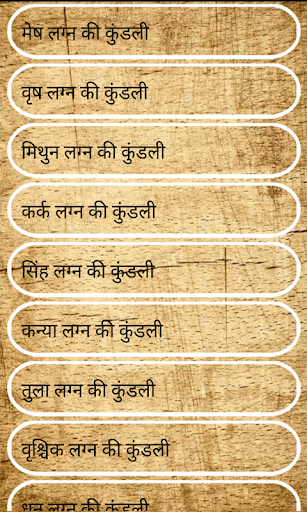 मेष लग्न की कुंडली
वृष लग्न की कुंडली
मिथुन लग्न की कुंडली
कर्क लग्न की कुंडली
सिंह लग्न की कुंडली
कन्या लग्न की कुंडली
तुला लग्न की कुंडली
वृश्चिक लग्न की कुंडली
धनु लग्न की कुंडली